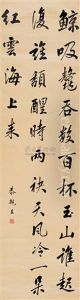 鯨吸鼇吞數百杯玉山誰起
復誰頹醒時兩袂天風冷一朵
紅雲海上來
恭親王